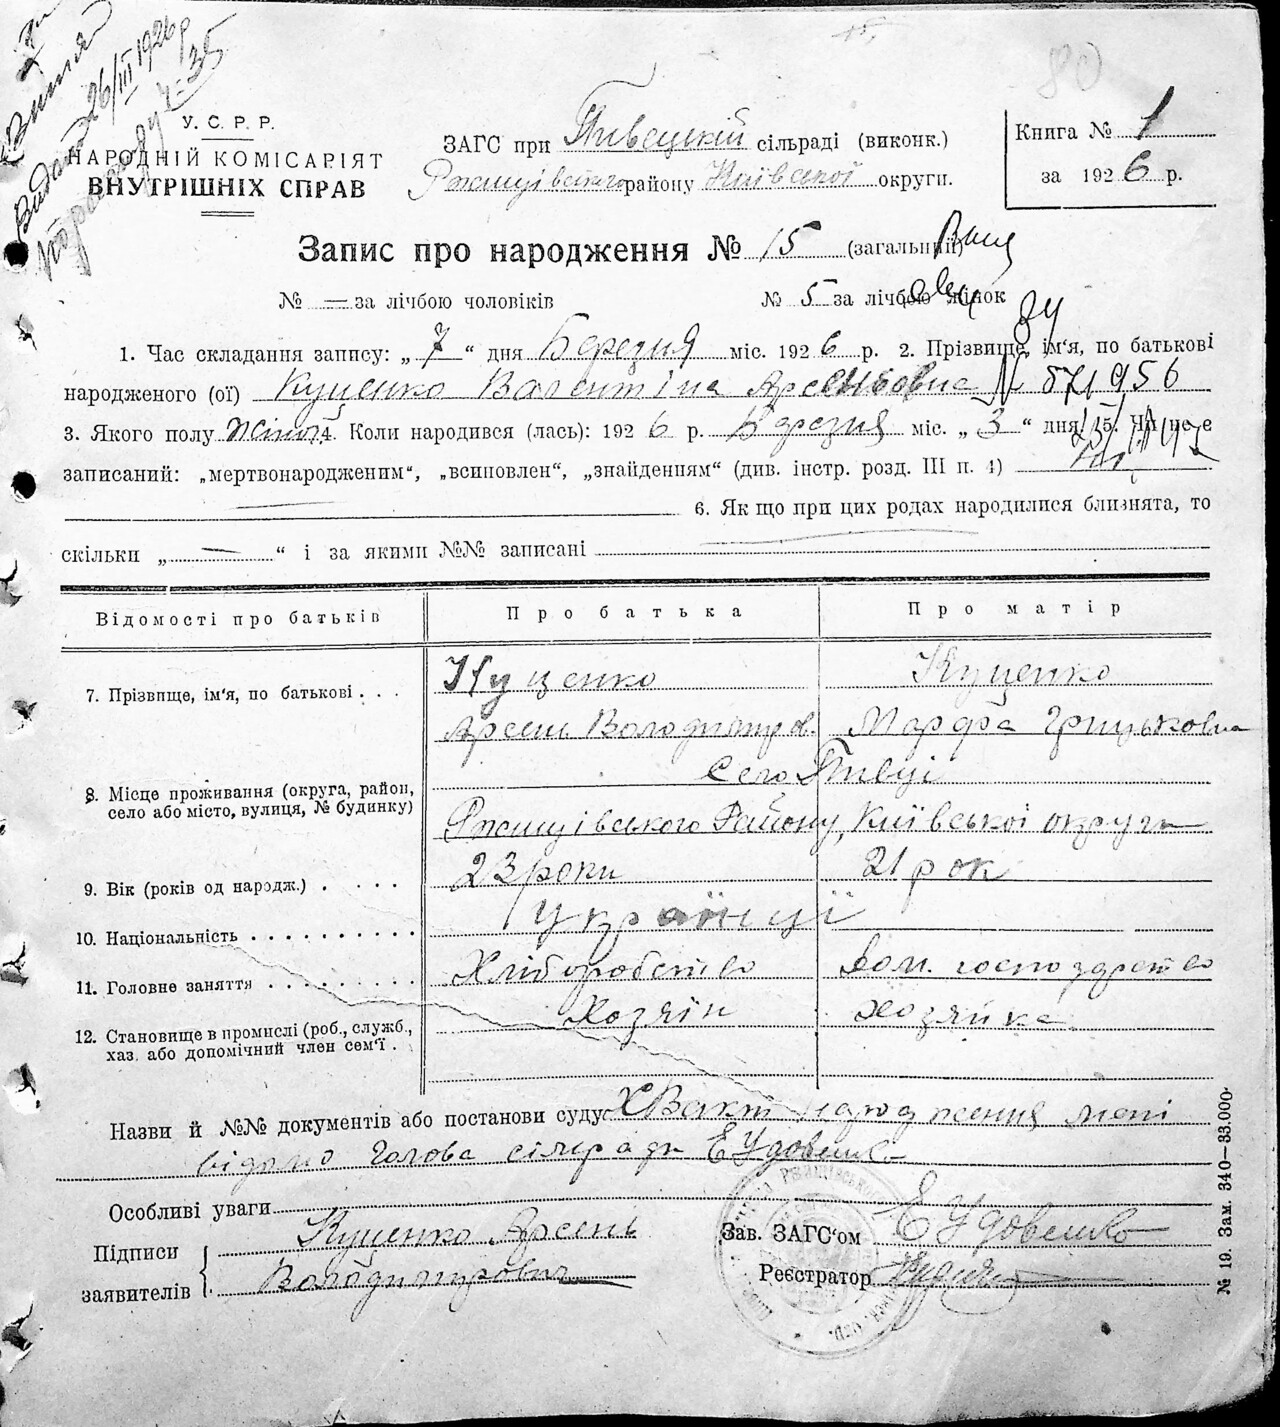 Видано 26/III 1926 р
У. С. Р. Р.
НАРОДНІЙ КОМІСАРІЯТ
ВНУТРІШНІХ СПРАВ
ЗАГС при Пивецкій сільраді (виконк.)
Ржищівського району Київської округи.
Книга № 1
за 1926 р.
80
Запис про народження № 15 (загальний)
№ — за лічбою чоловіків № 5 за лічбою жінок
1. Час складання запису: „ 7 “ дня Березня міс. 1926 р. 2. Прізвище, ім‘я, по батькові
народженого (ої) Куценко Валентіна Арсеньовна № 871956
3. Якого полу жіноч 4. Коли народився (лась): 1926 р. Березня міс. „ 3 “ дня 5. Чи не є
записаний: „мертвонародженим“, „всиновлен“, „знайденням“ (див. інстр. розд. III п. 4)
6. Як що при цих родах народилися близнята, то
скільки „ — “ і за якими №№ записані
Відомості про батьків Про батька Про матір
7. Прізвище, ім‘я, по батькові . . . Куценко Куценко
Арсень Володимиров. Марфа Грицьковна
8. Місце проживання (округа, район, село або місто, вулиця, № будинку) Село Пивці
Ржищівського Району, Київської округи
9. Вік (років од нарэдж.) . . . . 23 роки 21 рок
10. Національність . . . . . . . . . . Українці
11. Головне заняття . . . . . . . . . Хліборобство Дом. господарство
12. Становище в промислі (роб., служб., хаз. або допомічний член сем‘ї . Хозяін хозяйка
Назви й №№ документів або постанови суду Х Вакт народження мені
відомо Голова сільради Е Удовенко
Особливі уваги
Підписи
заявителів
Куценко Арсень
Володимирович
Зав. ЗАГС‘ом Е Удовенко
Реєстратор
№ 19. Зам. 340—33.000.